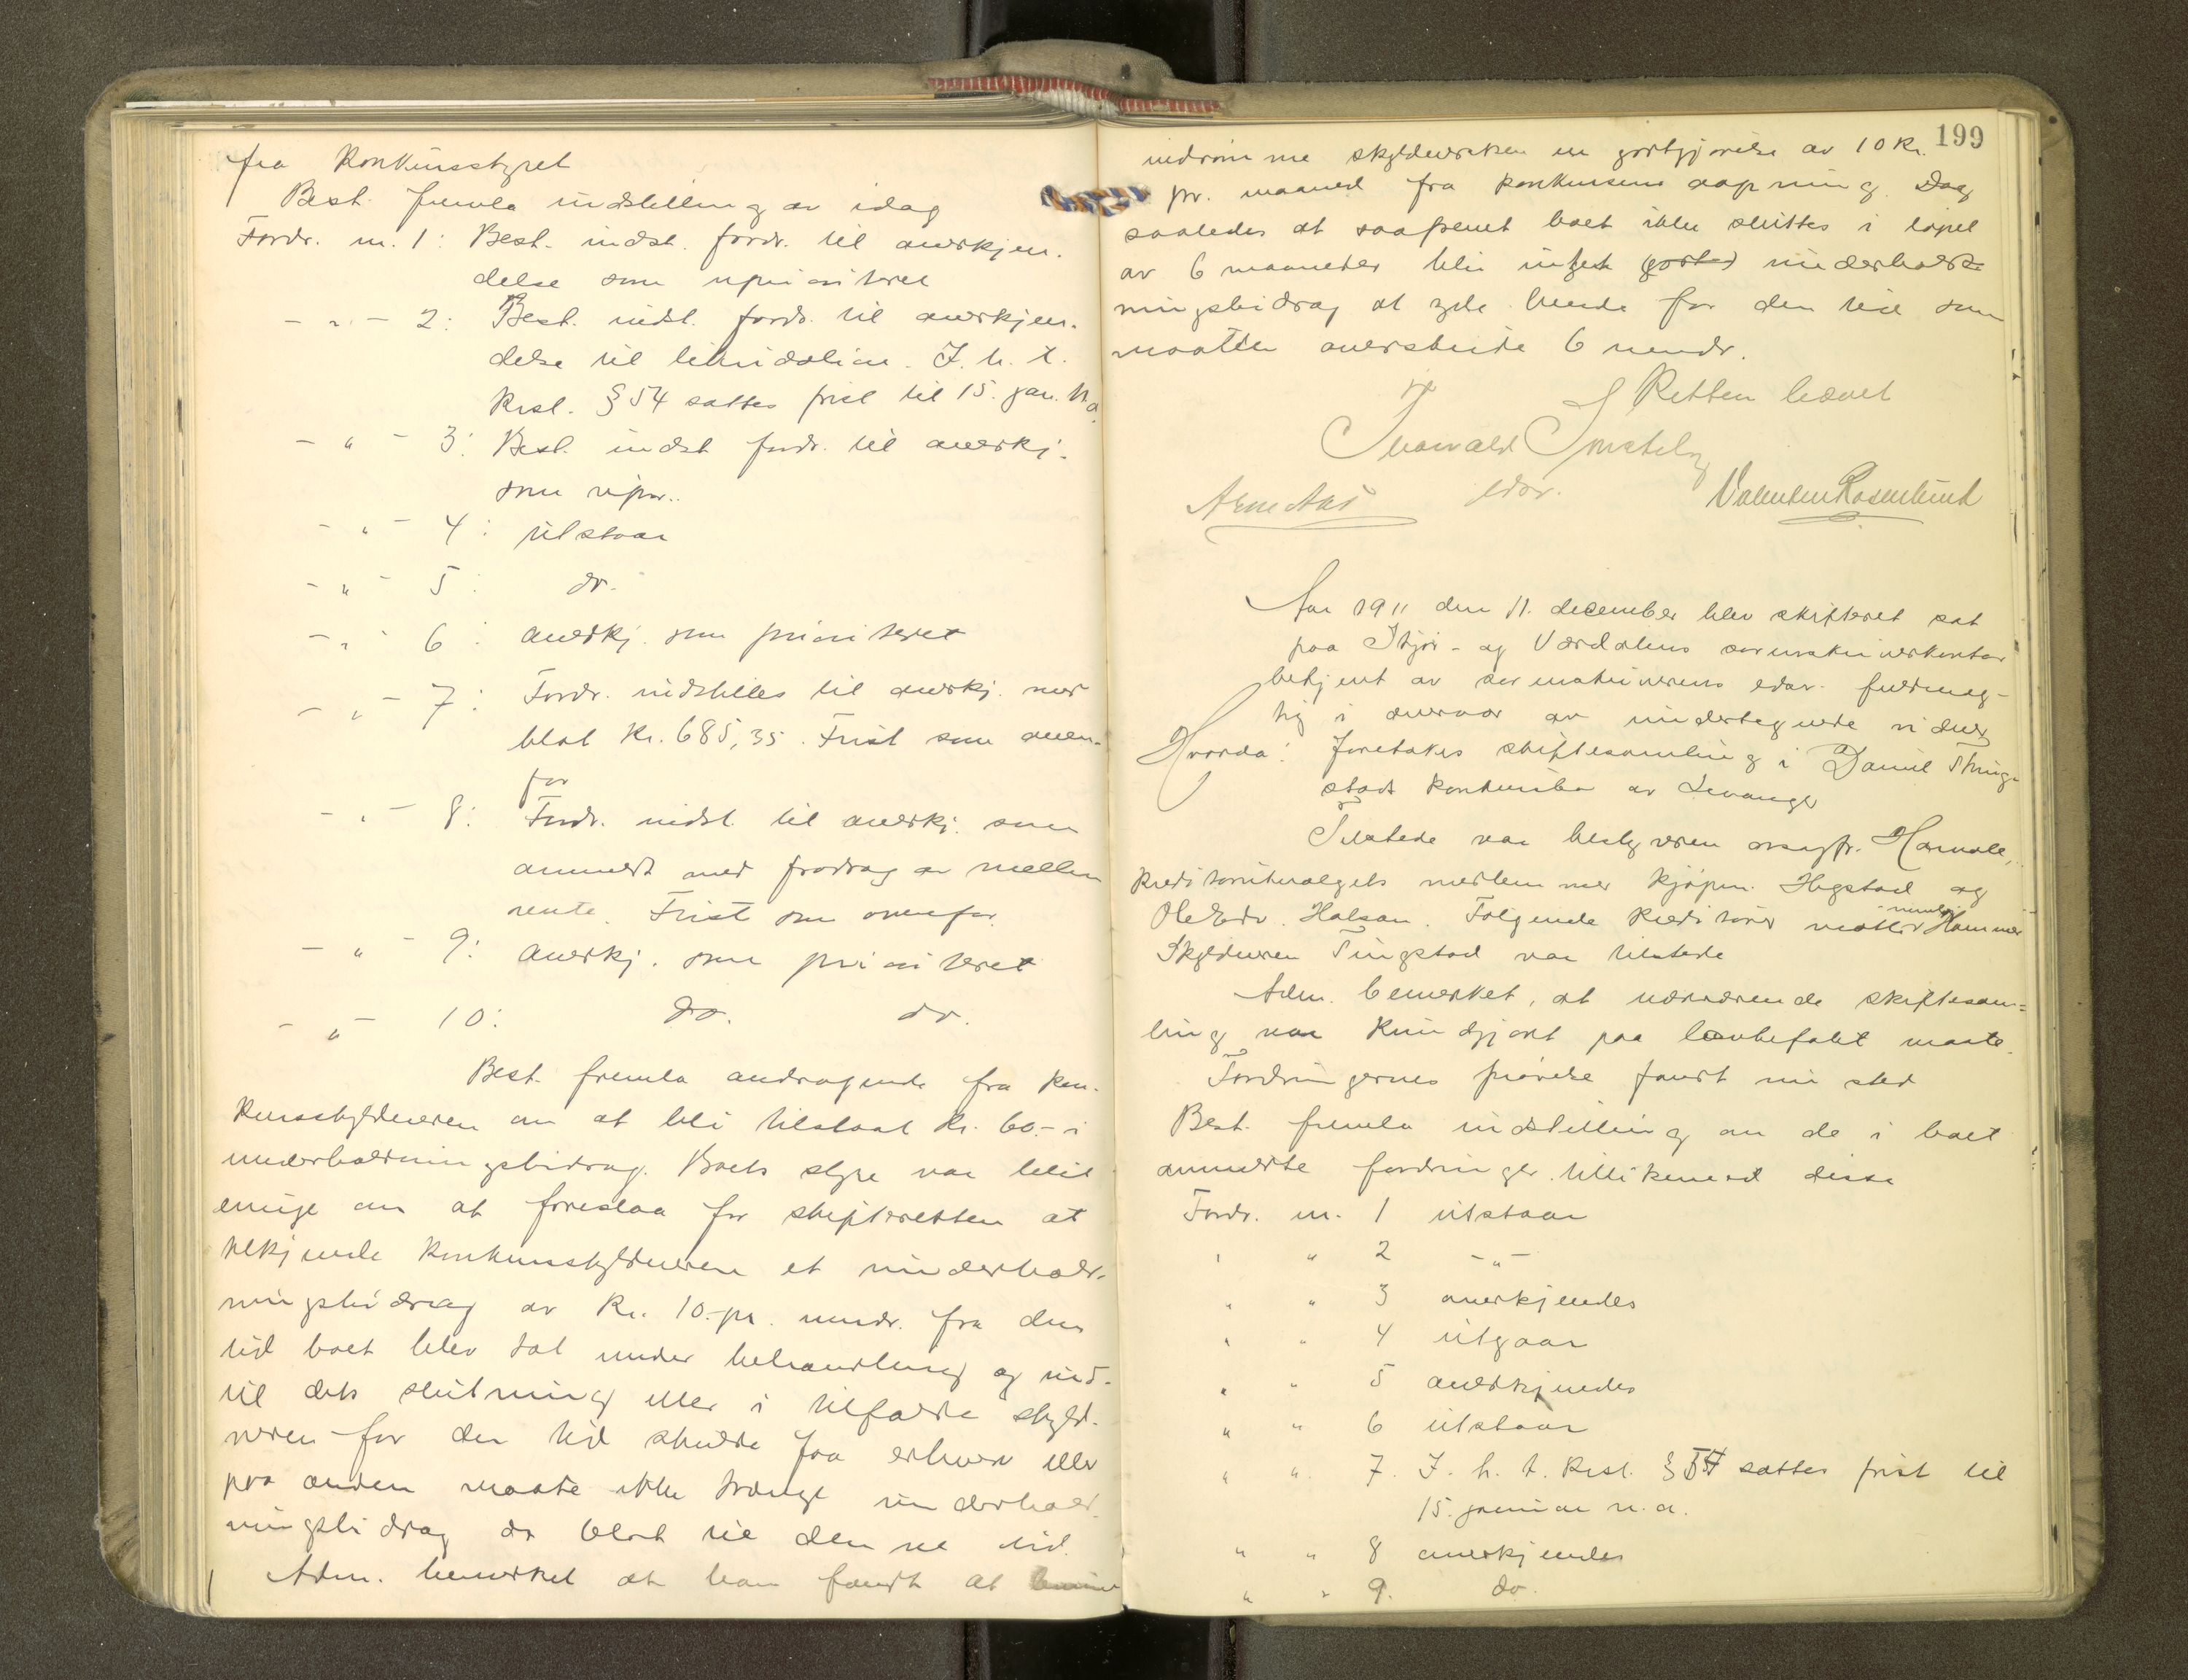 fra Konkursstyret
Best. fremla indstilling av idag
Fordr. nr. 1: Best. indst. fordr. til anerkjen-
delse som uprioritert
- " - 2: Best. indst. fordr. til anerkjen-
delse til likvidation. I. h. t.
Krsl. § 54 sattes frist til 15. jan. n.a.
- " - 3: Best. indst fordr. til anerkj.
som upr..
- " - 4: utstaar
- " - 5: do.
- " - 6: anerkj. som prioritert
- " - 7: Fordr. indstilles til anerkj. med
blot Kr. 685,35. Frist som oven-
for
- " - 8: Fordr. indst. til anerkj. som
anmeldt med fradrag av mellem
rente. Frist som ovenfor.
- " - 9: anerkj. som prioritert
- " - 10: do. do.
Best. fremla andragende fra kon-
kursskyldneren om at bli tilstaat Kr. 60.- i
underholdningsbidrag. Boets styre var blit
enige om at foreslaa for skifteretten at
tilkjende konkursskyldneren et underhold-
ningsbidrag av Kr. 10.- pr. mndr. fra den
tid boet blev tat under behandling og ind-
til dets slutning eller i tilfælde skyld-
neren før den tid skulde faa erhverv eller
paa anden maate ikke trænge underhold-
ningsbidrag da blot til denne tid.
Adm. bemerket at han fandt at
199
indrømme skyldnersken en godtgjørelse av 10 Kr.
pr. maaned fra konkursens aapning. Dog
saaledes at saafremt boet ikke sluttes i løpet
av 6 maaneder blir intet godtgj underhold-
ningsbidrag at yde hende for den tid som
maatte overskride 6 mndr.
Retten hævet
Thorvald Smstely
edsv.
Arne Aas Valentin Rosenlund
Aar 1911 den 11. december blev skifteret sat
paa Stjør- og Værdalens sorenskriverkontor
betjent av sorenskriverens edsv. fuldmæg-
tig i overvær av undertegnede vidner
Hvorda: foretokes skiftesamling i Daniel Thing-
stads konkursbo av Levanger
Tilstede var bestyreren overrf. Hornvale,
kreditorutvalgets medlemmer kjøpm. Hegstad og
Ole Edv. Halsan. Følgende kreditorer møtte nemlig Hammer
Skyldneren Tingstad var tilstede
Adm. bemerket, at nærværende skiftesam-
ling var kundgjort paa lovbefalt maate.
Fordringernes prøvelse fandt nu sted
Best. fremla indstilling om de i boet
anmeldte fordringer tillikemed disse
Fordr. nr. 1 utstaar
" " 2 - " -
" " 3 anerkjendes
" " 4 utgaar
" " 5 anerkjendes
" " 6 utstaar
" " 7. I. h. t. Krsl. § 54 sattes frist til
15. januar n. a.
" " 8 anerkjendes
" " 9. do.